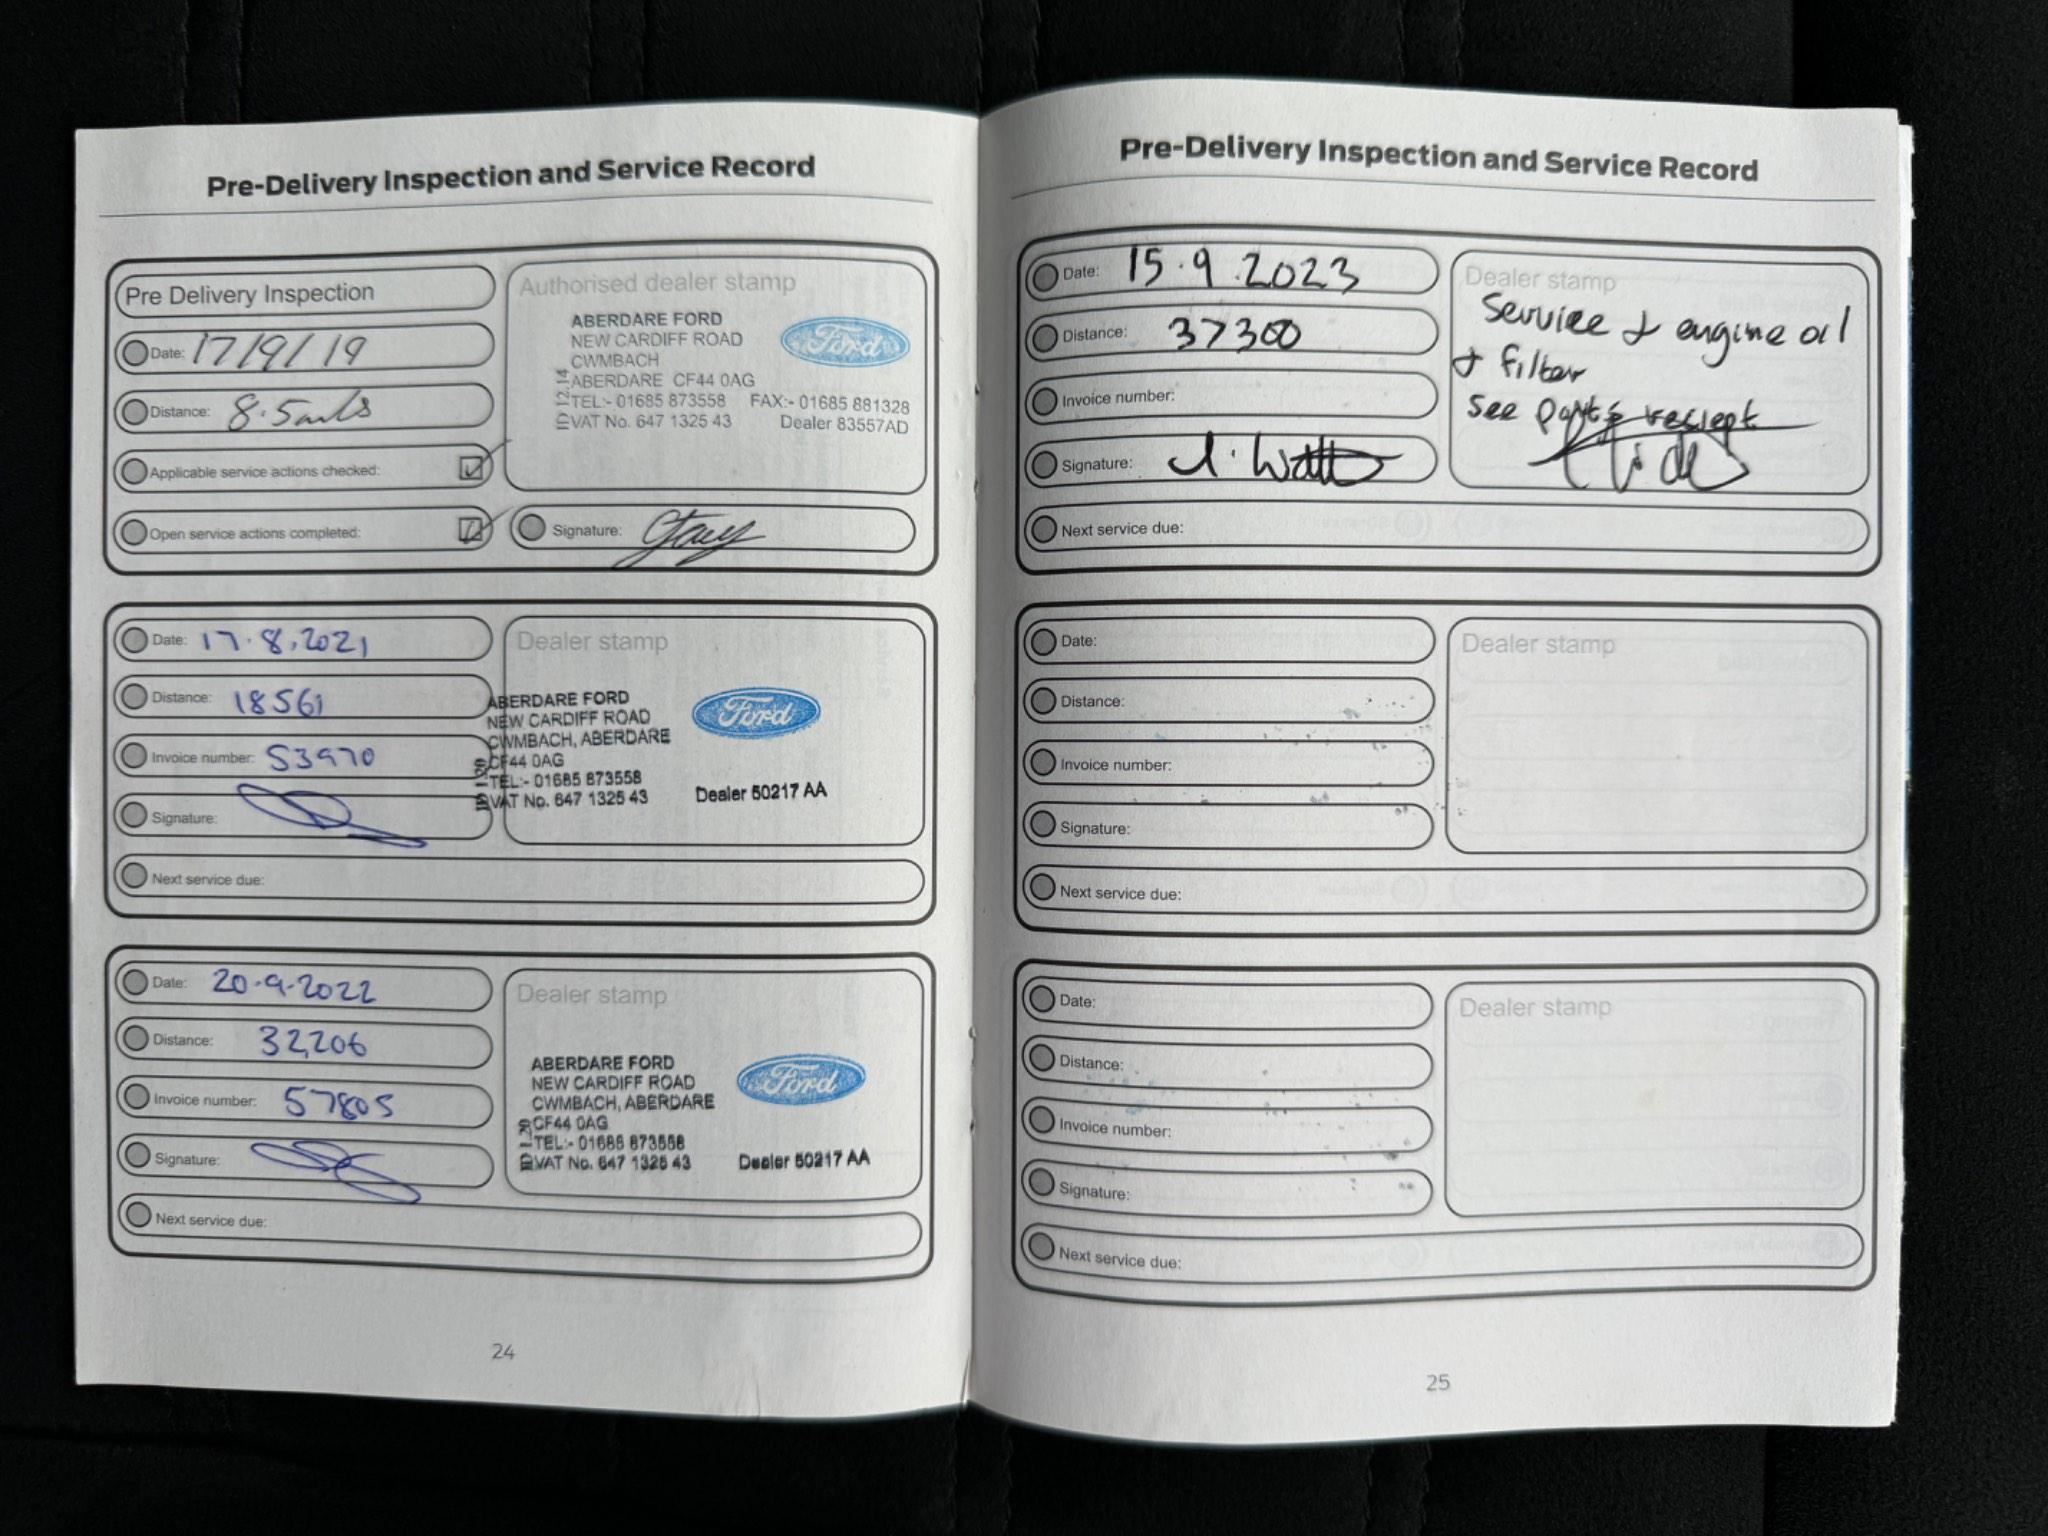 Pre-Delivery Inspection and Service Record
Pre Delivery Inspection
Date: 17/9/19
Distance: 8.5 mls
Applicable service actions checked:
Open service actions completed:
Authorised dealer stamp
ABERDARE FORD
NEW CARDIFF ROAD
CWMBACH
ABERDARE CF44 0AG
TEL:- 01685 873558 FAX:- 01685 881328
VAT No. 647 1325 43 Dealer 83557AD
Ford
Signature:
Date: 17.8.2021
Distance: 18561
Invoice number: 53970
Signature:
Next service due:
Dealer stamp
ABERDARE FORD
NEW CARDIFF ROAD
CWMBACH, ABERDARE
CF44 0AG
TEL:- 01685 873558
VAT No. 647 1325 43
Ford
Dealer 50217 AA
Date: 20.9.2022
Distance: 32,206
Invoice number: 57805
Signature:
Next service due:
Dealer stamp
ABERDARE FORD
NEW CARDIFF ROAD
CWMBACH, ABERDARE
CF44 0AG
TEL:- 01685 873558
VAT No. 647 1325 43
Ford
Dealer 50217 AA
24
Pre-Delivery Inspection and Service Record
Date: 15.9.2023
Distance: 37300
Invoice number:
Signature:
Next service due:
Dealer stamp
Service & engine oil
& filter
see parts reciept
Date:
Distance:
Invoice number:
Signature:
Next service due:
Dealer stamp
Date:
Distance:
Invoice number:
Signature:
Next service due:
Dealer stamp
25